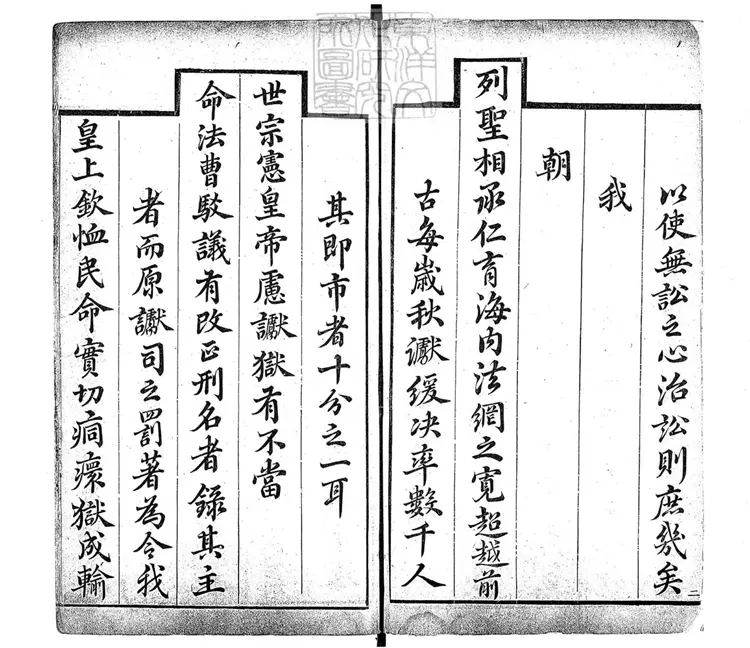 以使無訟之心治訟則庶幾矣
我
朝
列聖相承仁育海内法網之寬超越前
古每歲秋讞緩决率數千人
其即市者十分之一耳
世宗憲皇帝慮讞獄有不當
命法曹駁議有改正刑名者錄其主
者而原讞司之罰著為令我
皇上欽恤民命實切痌瘝獄成輸
二